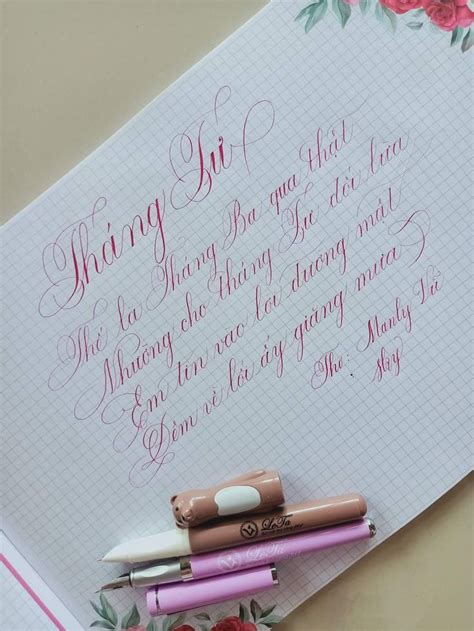 Tháng Tư
Thế là Tháng Ba qua thật
Nhường cho tháng Tư dối lừa
Em tin vào lời đường mật
Đêm về lôi ấy giăng mưa
Thơ: Manly Vũ
LeTa
LeTa